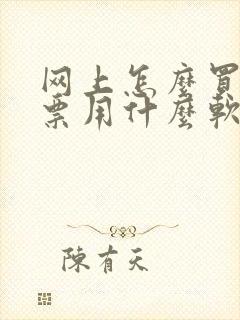 网上怎麼買
票用什麼軟
陳有天